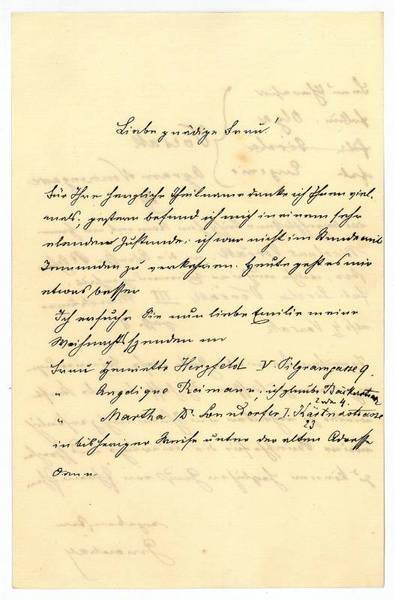 Liebe gnädige Frau!
Für Ihre herzliche Theilname danke ich Ihnen viel-
mals; gestern befand ich mich in einem sehr
elenden Zustande; ich war nicht im Stande mit
Jemanden zu verkehren. Heute geht es mir
etwas besser
Ich ersuche Sie nun liebe Emilie meine
Weihnachtsspenden an
Frau Henriette Herzfeld V Pilgramgasse 9.
" Angelique Reimann; ich glaube
2 oder 4.
" Martha Dr. I. Kärtnerstrasse
23
in bisheriger Weise unter der alten Adresse